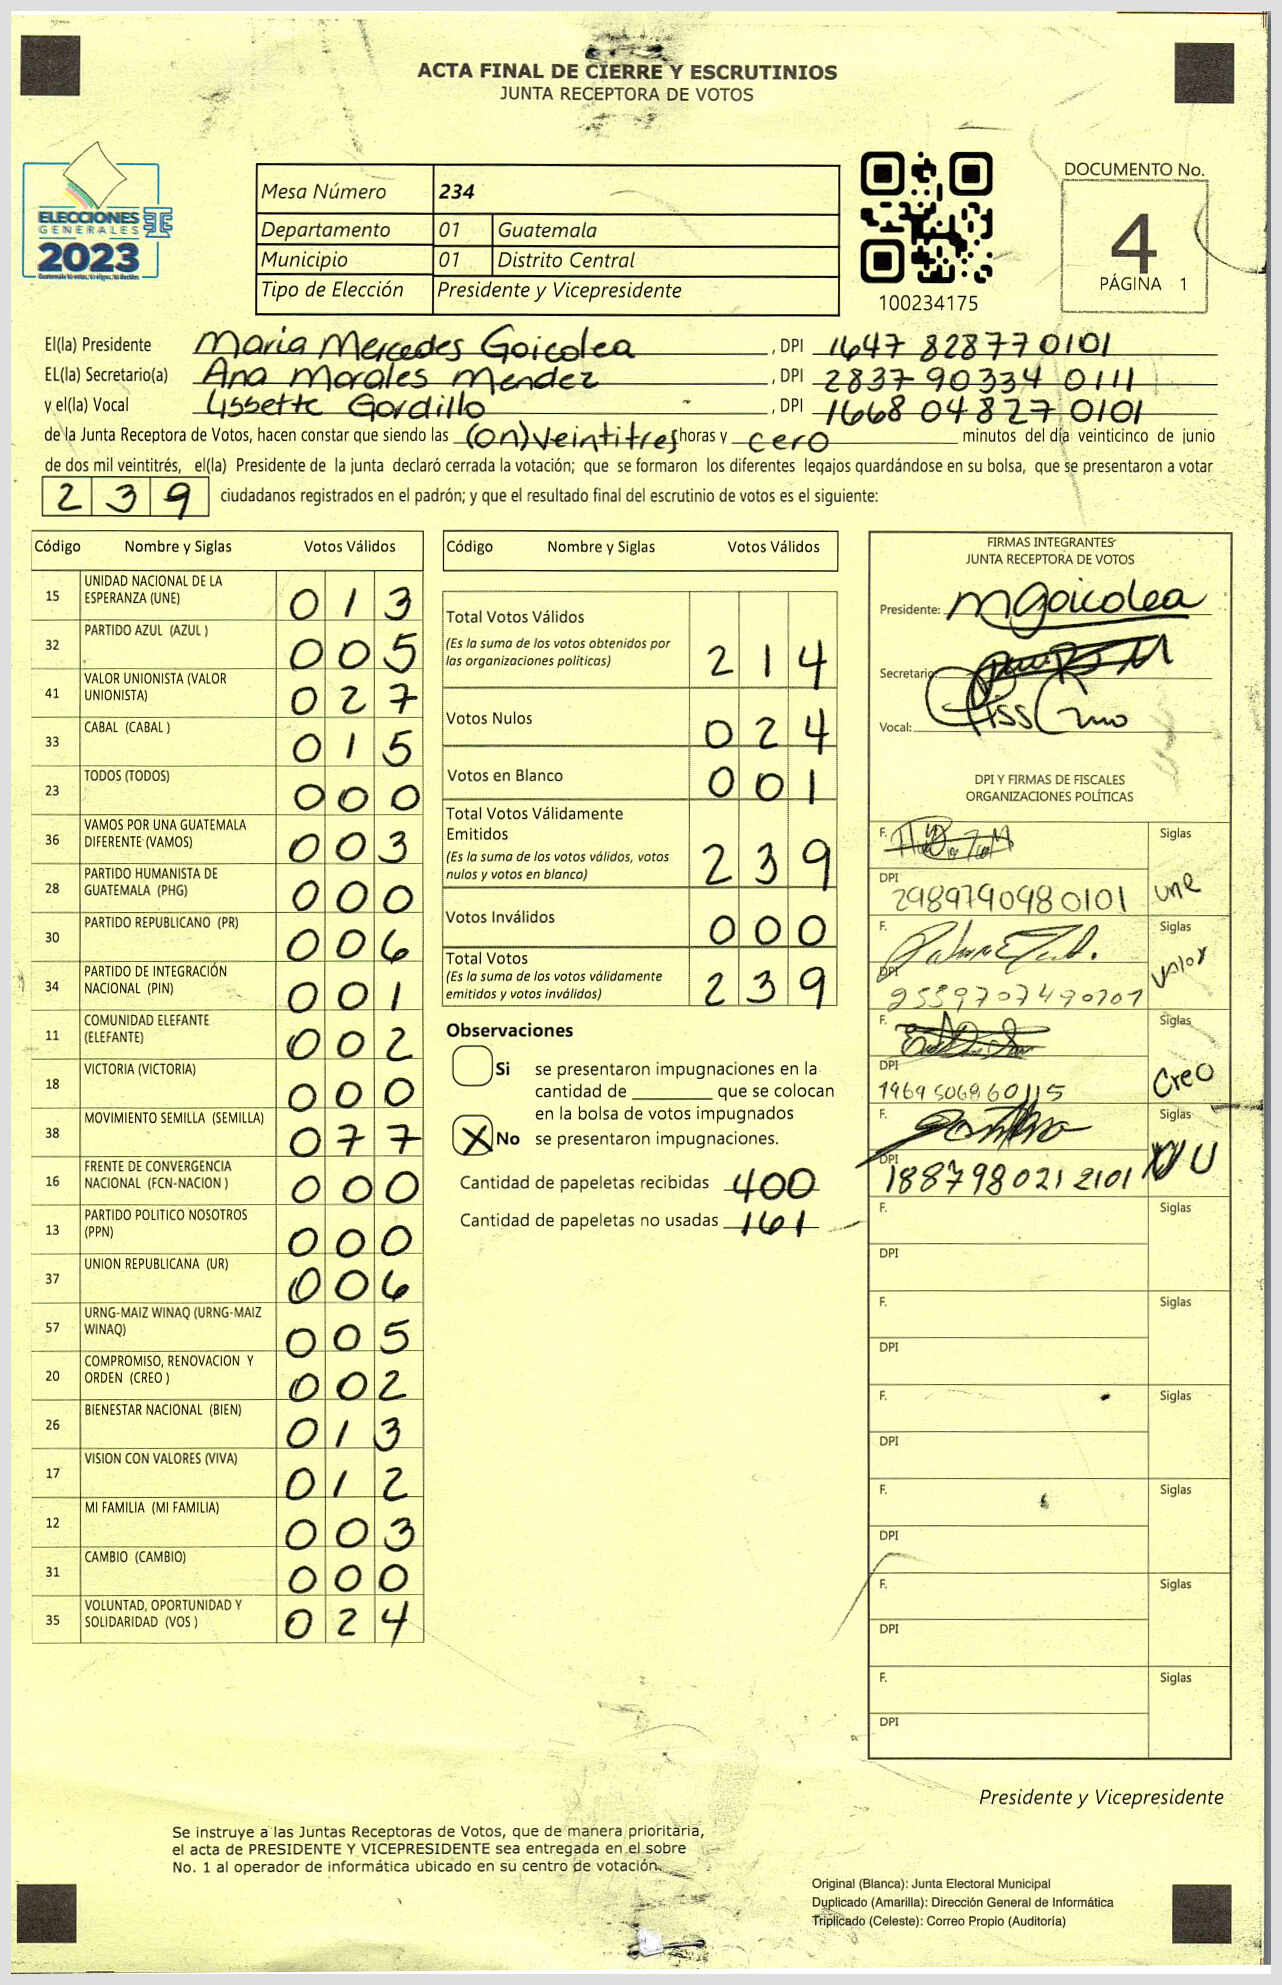 ACTA FINAL DE CIERRE Y ESCRUTINIOS
JUNTA RECEPTORA DE VOTOS
ELECCIONES
GENERALES
2023
Mesa Número 234
Departamento 01 Guatemala
Municipio 01 Distrito Central
Tipo de Elección Presidente y Vicepresidente
100234175
DOCUMENTO No.
4
PÁGINA 1
El(la) Presidente Maria Mercedes Goicolea , DPI 1647 82877 0101
EL(la) Secretario(a) Ana Morales Mendez , DPI 2837 90334 0111
y el(la) Vocal Lissette Gordillo , DPI 1668 04827 0101
de la Junta Receptora de Votos, hacen constar que siendo las (on) veintitres horas y cero minutos del día veinticinco de junio
de dos mil veintitrés, el(la) Presidente de la junta declaró cerrada la votación; que se formaron los diferentes legajos guardándose en su bolsa, que se presentaron a votar
239 ciudadanos registrados en el padrón; y que el resultado final del escrutinio de votos es el siguiente:
Código Nombre y Siglas Votos Válidos
15 UNIDAD NACIONAL DE LA
ESPERANZA (UNE) 013
32 PARTIDO AZUL (AZUL ) 005
41 VALOR UNIONISTA (VALOR
UNIONISTA) 027
33 CABAL (CABAL ) 015
23 TODOS (TODOS) 000
36 VAMOS POR UNA GUATEMALA
DIFERENTE (VAMOS) 003
28 PARTIDO HUMANISTA DE
GUATEMALA (PHG) 000
30 PARTIDO REPUBLICANO (PR) 006
34 PARTIDO DE INTEGRACIÓN
NACIONAL (PIN) 001
11 COMUNIDAD ELEFANTE
(ELEFANTE) 002
18 VICTORIA (VICTORIA) 000
38 MOVIMIENTO SEMILLA (SEMILLA) 077
16 FRENTE DE CONVERGENCIA
NACIONAL (FCN-NACION ) 000
13 PARTIDO POLITICO NOSOTROS
(PPN) 000
37 UNION REPUBLICANA (UR) 006
57 URNG-MAIZ WINAQ (URNG-MAIZ
WINAQ) 005
20 COMPROMISO, RENOVACION Y
ORDEN (CREO ) 002
26 BIENESTAR NACIONAL (BIEN) 013
17 VISION CON VALORES (VIVA) 012
12 MI FAMILIA (MI FAMILIA) 003
31 CAMBIO (CAMBIO) 000
35 VOLUNTAD, OPORTUNIDAD Y
SOLIDARIDAD (VOS ) 024
Código Nombre y Siglas Votos Válidos
Total Votos Válidos
(Es la suma de los votos obtenidos por
las organizaciones políticas) 214
Votos Nulos 024
Votos en Blanco 001
Total Votos Válidamente
Emitidos
(Es la suma de los votos válidos, votos
nulos y votos en blanco) 239
Votos Inválidos 000
Total Votos
(Es la suma de los votos válidamente
emitidos y votos inválidos) 239
Observaciones
Si se presentaron impugnaciones en la
cantidad de ________ que se colocan
en la bolsa de votos impugnados
X No se presentaron impugnaciones.
Cantidad de papeletas recibidas 400
Cantidad de papeletas no usadas 161
FIRMAS INTEGRANTES
JUNTA RECEPTORA DE VOTOS
Presidente: MGoicolea
Secretario:
Vocal:
DPI Y FIRMAS DE FISCALES
ORGANIZACIONES POLÍTICAS
F. Siglas
DPI 2989790980101 une
F. Siglas
DPI 2559707490101 valor
F. Siglas
DPI 1969506860115 Creo
F. Siglas
DPI 1887980212101 U
F. Siglas
DPI
F. Siglas
DPI
F. Siglas
DPI
F. Siglas
DPI
F. Siglas
DPI
F. Siglas
DPI
Presidente y Vicepresidente
Se instruye a las Juntas Receptoras de Votos, que de manera prioritaria,
el acta de PRESIDENTE Y VICEPRESIDENTE sea entregada en el sobre
No. 1 al operador de informática ubicado en su centro de votación.
Original (Blanca): Junta Electoral Municipal
Duplicado (Amarilla): Dirección General de Informática
Triplicado (Celeste): Correo Propio (Auditoría)